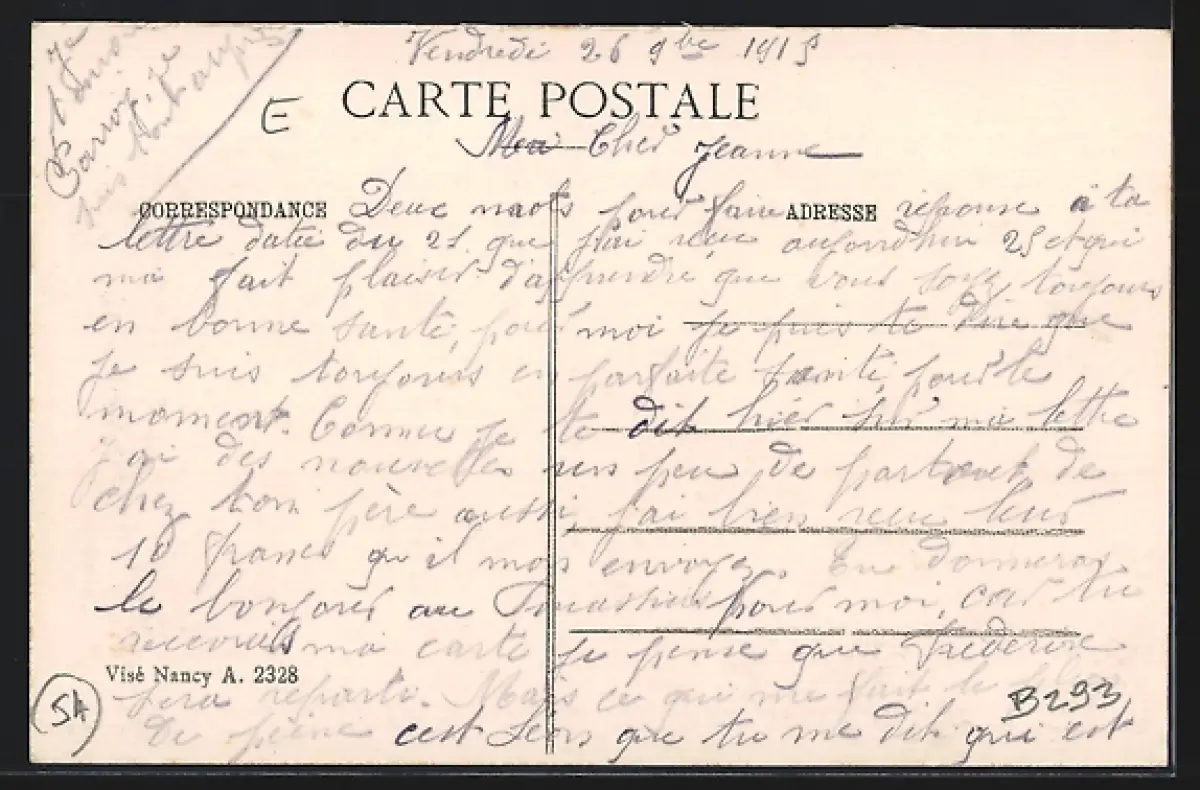 Vendredi 26 9bre 1915
CARTE POSTALE
E
Ma Cher Jeanne
CORRESPONDANCE
ADRESSE
Deux mots pour faire reponse a ta
lettre datée du 21. que j'ai recu aujourdhui 25 et qui
ma fait plaisir d'apprendre que vous soyez toujours
en bonne santé, pour moi je puis te dire que
je suis toujours en parfaite santé, pour le
moment. Comme je te dit hier sur ma lettre
j'ai des nouvelles un peu de partout de
chez ton père aussi j'ai bien recu leur
10 francs qu il mon envoyez. Tu donneras
le bonjour au pour moi, car tu
ma carte je pense que Frederic
sera reparti. Mais ce qui me fait le plus
de peine cest Léon que tu me dit qui est
Visé Nancy A. 2328
54
B293